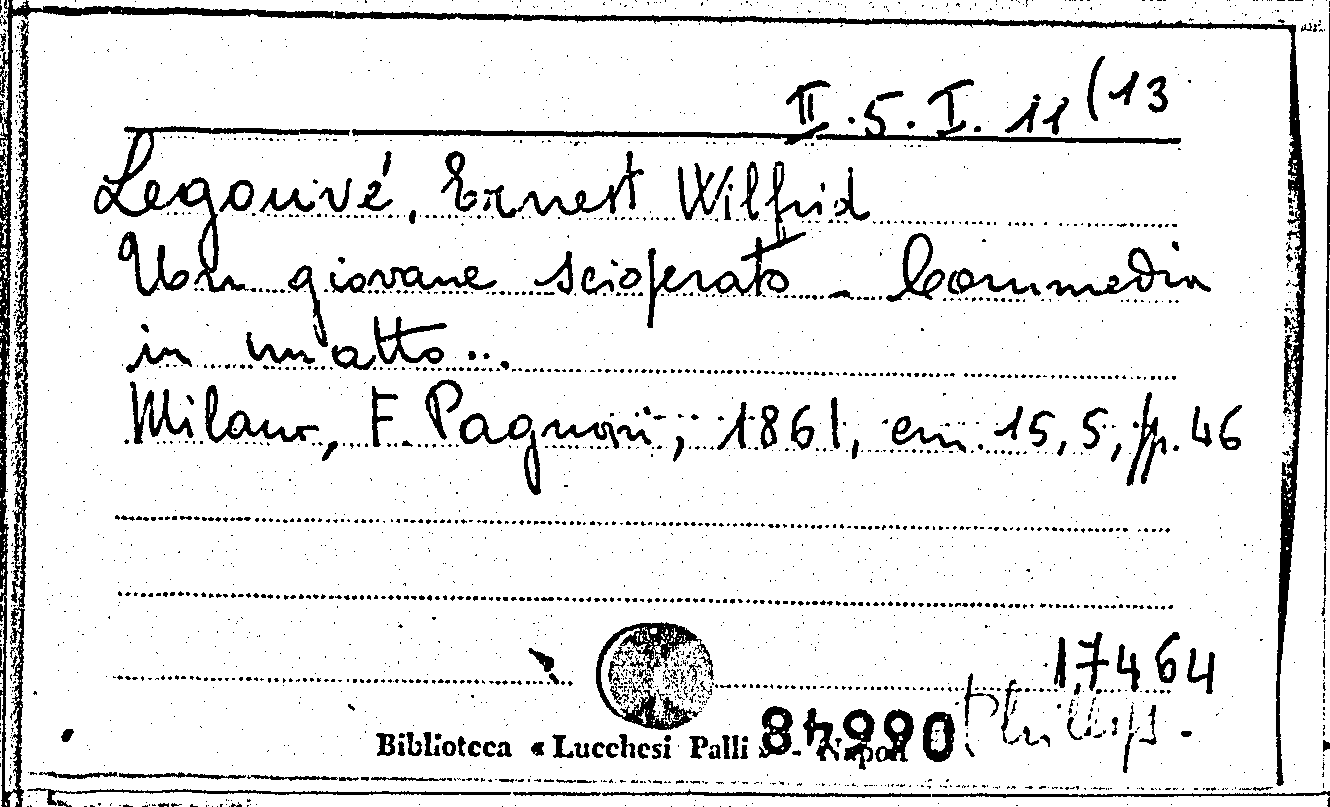 II.5.I.11(13
Legouvé, Ernest Wilfrid
Un giovane scioperato - Commedia
in un atto...
Milano, F. Pagnoni, 1861, cm. 15,5, pp. 46
17464
Phillips.
Biblioteca « Lucchesi Palli » - Napoli